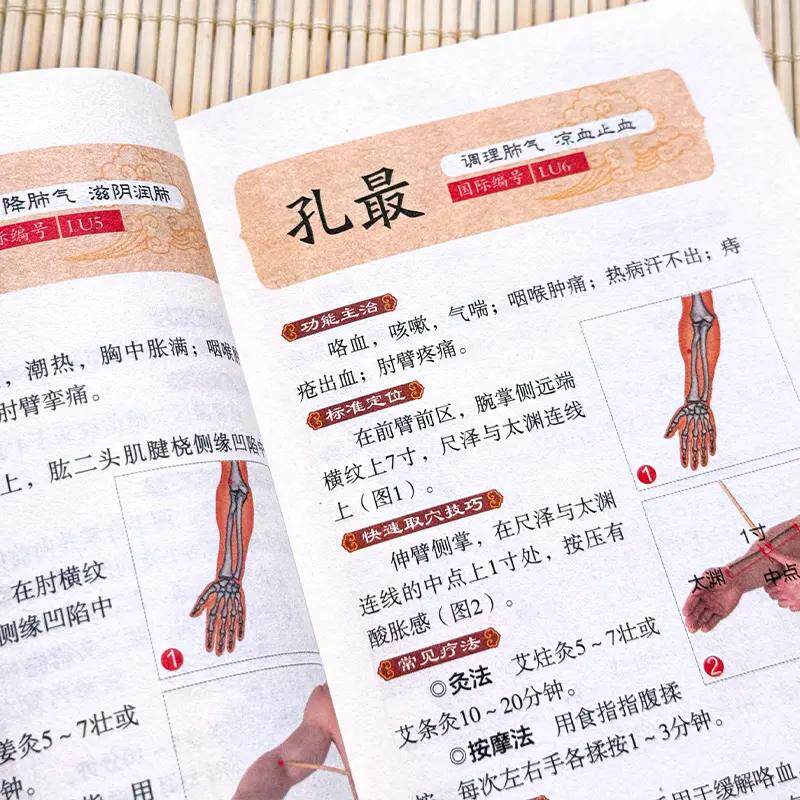 降肺气 滋阴润肺
际编号 LU5
，潮热，胸中胀满；咽喉
肘臂挛痛。
上，肱二头肌腱桡侧缘凹陷中
1
在肘横纹
侧缘凹陷中
姜灸5～7壮或
钟。
用
孔最
调理肺气 凉血止血
国际编号 LU6
功能主治
咯血，咳嗽，气喘；咽喉肿痛；热病汗不出；痔
疮出血；肘臂疼痛。
标准定位
在前臂前区，腕掌侧远端
横纹上7寸，尺泽与太渊连线
上（图1）。
1
快速取穴技巧
伸臂侧掌，在尺泽与太渊
连线的中点上1寸处，按压有
酸胀感（图2）。
1寸
太渊
中点
2
常见疗法
◎灸法 艾炷灸5～7壮或
艾条灸10～20分钟。
◎按摩法 用食指指腹揉
按，每次左右手各揉按1～3分钟。
用于缓解咯血